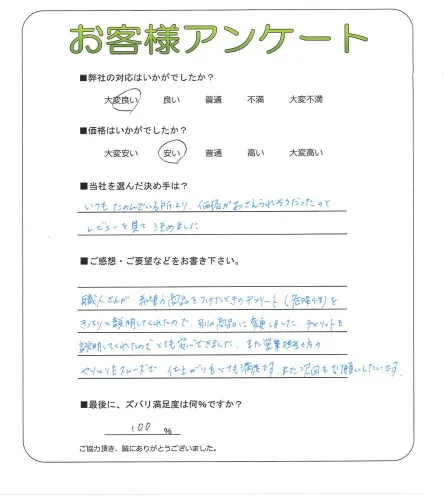 お客様アンケート
■弊社の対応はいかがでしたか?
大変良い 良い 普通 不満 大変不満
■価格はいかがでしたか?
大変安い 安い 普通 高い 大変高い
■当社を選んだ決め手は?
いつもたのんでいる所より、価格がおさえられそうだったのと
レビューを見てきめました
■ご感想・ご要望などをお書き下さい。
職人さんが 希望の商品をつけたときのデメリット(危険性)を
きっちりと説明してくれたので、別の商品に変更しました。デメリットも
説明してくれたのでとても安心できました。また営業担当の方の
やりとりもスムーズで 仕上がりもとても満足です。また次回もお願いしたいです。
■最後に、ズバリ満足度は何%ですか?
100 %
ご協力頂き、誠にありがとうございました。